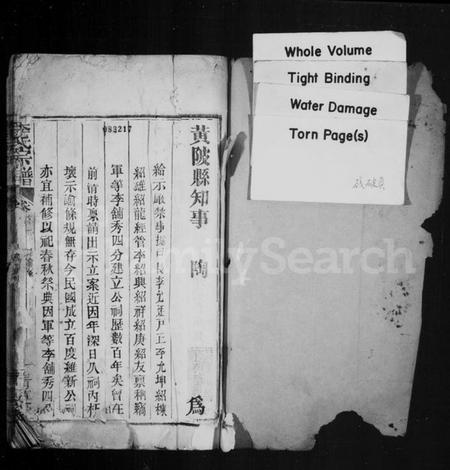 黃陂縣知事 陶 為
給示嚴禁事據戶長李 戶工李允坤紹棟
紹雄紹龍經管李紹典紹祥紹庚紹友稟稱竊
軍等李舖秀四分建立公祠歷數百年矣曾在
前清時稟請出示立案近因年深日久祠內朽
壞示諭條規無存今民國成立百度維新公祠
亦宜補修以祀春秋祭典因軍等李舖秀四
李氏宗譜
083217
Whole Volume
Tight Binding
Water Damage
Torn Page(s)
FamilySearch